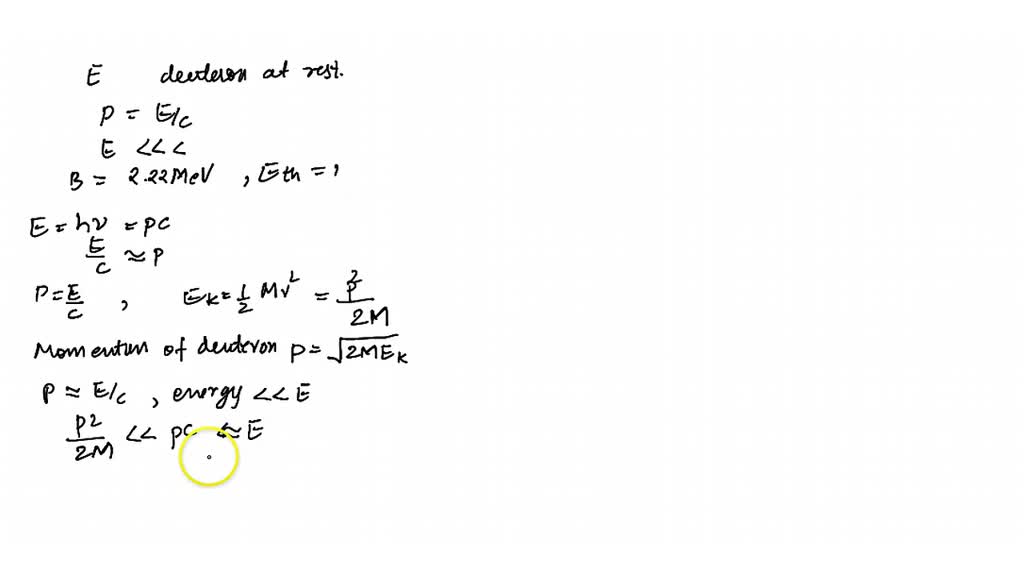 E deuteron at rest.
P = E/c
E <<<
B = 2.22MeV , Eth = ?
E = hν = pc
E/c ≈ P
P = E/c , EK = 1/2 Mv² = p²/2M
Momentum of deuteron p = √2MEK
P ≈ E/c , energy << E
p²/2M << pc ≈ E